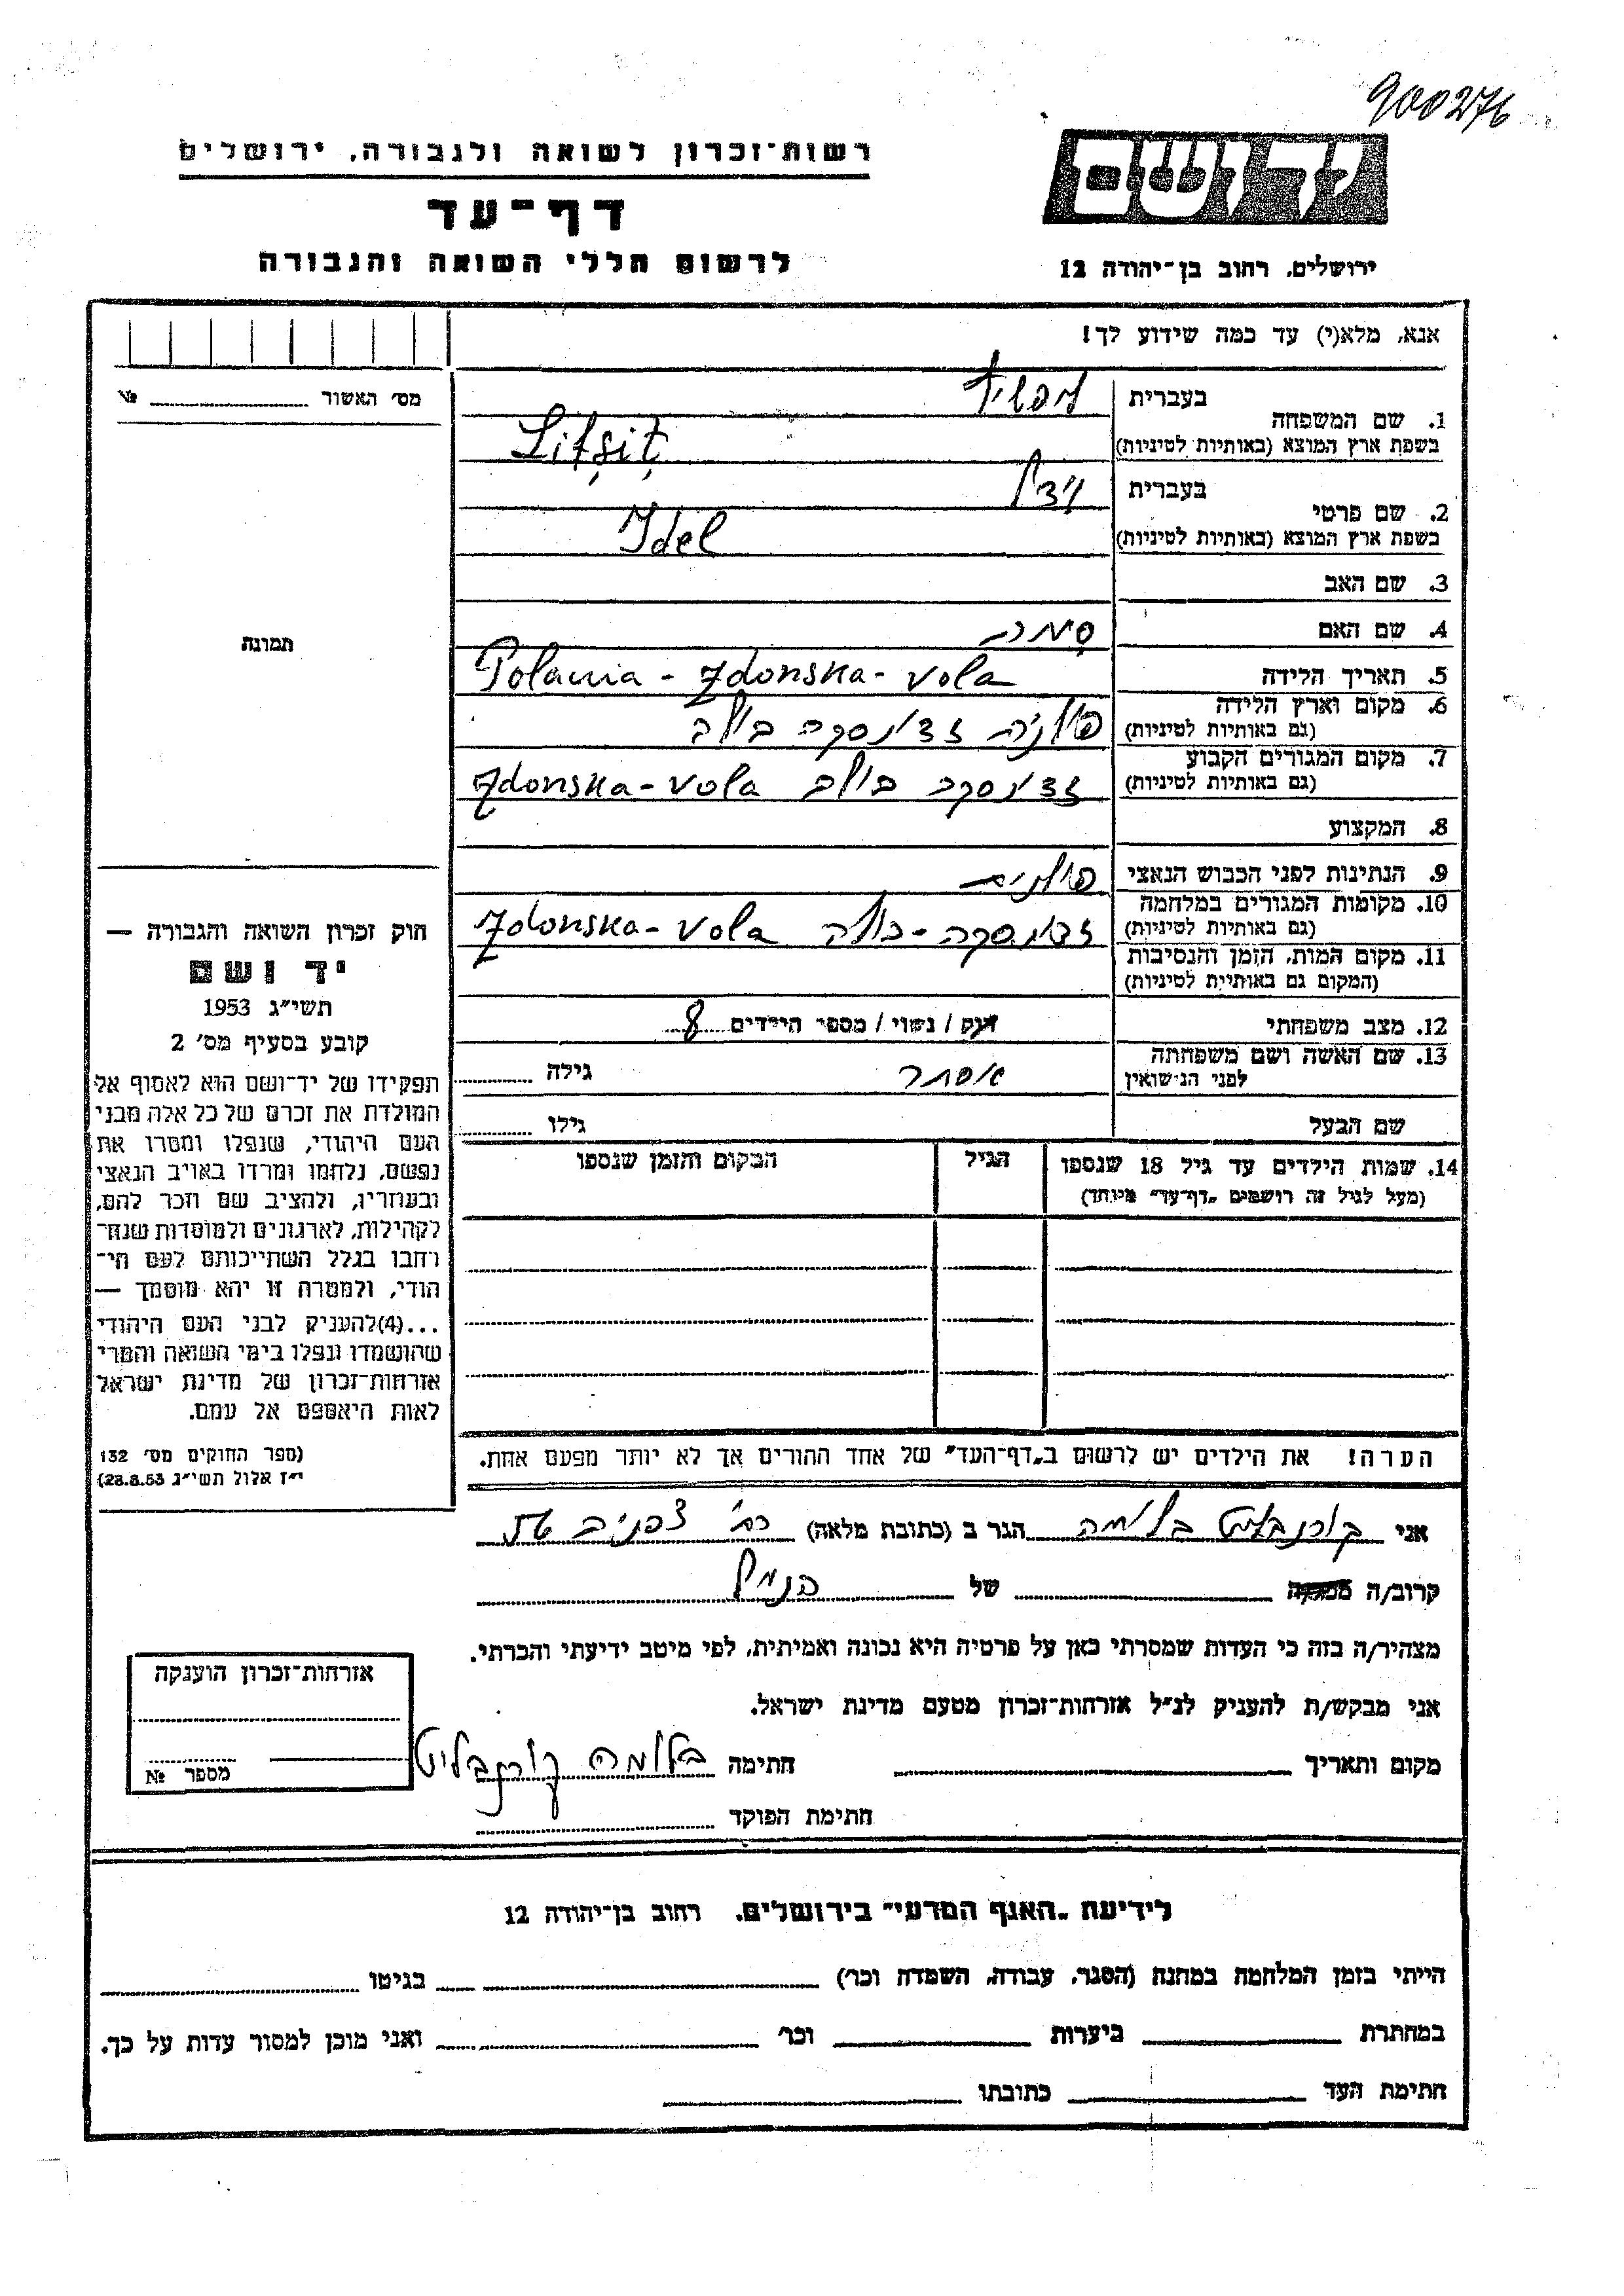 900276
רשות־זכרון לשואה ולגבורה, ירושלים
דף־עד
לרשום חללי השואה והגבורה
יד ושם
ירושלים, רחוב בן־יהודה 12
אנא, מלא(י) עד כמה שידוע לך!
מס׳ האשור № 
1. שם המשפחה
בעברית ליפשיץ
בשפת ארץ המוצא (באותיות לטיניות) Lifșiț
2. שם פרטי
בעברית
בשפת ארץ המוצא (באותיות לטיניות) Idel
3. שם האב
4. שם האם סימה
5. תאריך הלידה
6. מקום וארץ הלידה Polania - Zdonska - vola
(גם באותיות לטיניות) פולניה זדונסקה בולה
7. מקום המגורים הקבוע
(גם באותיות לטיניות) זדונסקה בולה Zdonska - vola
8. המקצוע
9. הנתינות לפני הכבוש הנאצי פולנית
10. מקומות המגורים במלחמה
(גם באותיות לטיניות) זדונסקה - בולה Zdonska - vola
11. מקום המות, הזמן והנסיבות
(המקום גם באותיות לטיניות)
12. מצב משפחתי רוק / נשוי / מספר הילדים 8
13. שם האשה ושם משפחתה
לפני הנישואין אסתר גילה
שם הבעל גילו
14. שמות הילדים עד גיל 18 שנספו הגיל המקום והזמן שנספו
(מעל לגיל זה רושמים „דף־עד״ מיוחד)
הערה! את הילדים יש לרשום ב„דף־העד״ של אחד ההורים אך לא יותר מפעם אחת.
תמונה
חוק זכרון השואה והגבורה —
יד ושם
תשי״ג 1953
קובע בסעיף מס׳ 2
תפקידו של יד־ושם הוא לאסוף אל
המולדת את זכרם של כל אלה מבני
העם היהודי, שנפלו ומסרו את
נפשם, נלחמו ומרדו באויב הנאצי
ובעוזריו, ולהציב שם וזכר להם,
לקהילות, לארגונים ולמוסדות שנח־
רחבו בגלל השתייכותם לעם הי־
הודי, ולמטרה זו יהא מוסמך —
...(4)להעניק לבני העם היהודי
שהושמדו ונפלו בימי השואה והמרי
אזרחות־זכרון של מדינת ישראל
לאות היאספם אל עמם.
(ספר החוקים מס׳ 132
י״ז אלול תשי״ג 28.8.53)
אני קורנבליט בלומה הגר ב (כתובת מלאה) רח׳ צפניה
קרוב/ה של הנ״ל
מצהיר/ה בזה כי העדות שמסרתי כאן על פרטיה היא נכונה ואמיתית, לפי מיטב ידיעתי והכרתי.
אני מבקש/ת להעניק לנ״ל אזרחות־זכרון מטעם מדינת ישראל.
מקום ותאריך חתימה בלומה קורנבליט
חתימת הפוקד
אזרחות־זכרון הוענקה
מספר №
לידיעת „האגף המדעי״ בירושלים, רחוב בן־יהודה 12
הייתי בזמן המלחמה במחנה (הסגר, עבודה, השמדה וכו׳) בגיטו
במחתרת ביערות וכו׳ ואני מוכן למסור עדות על כך.
חתימת העד כתובתו